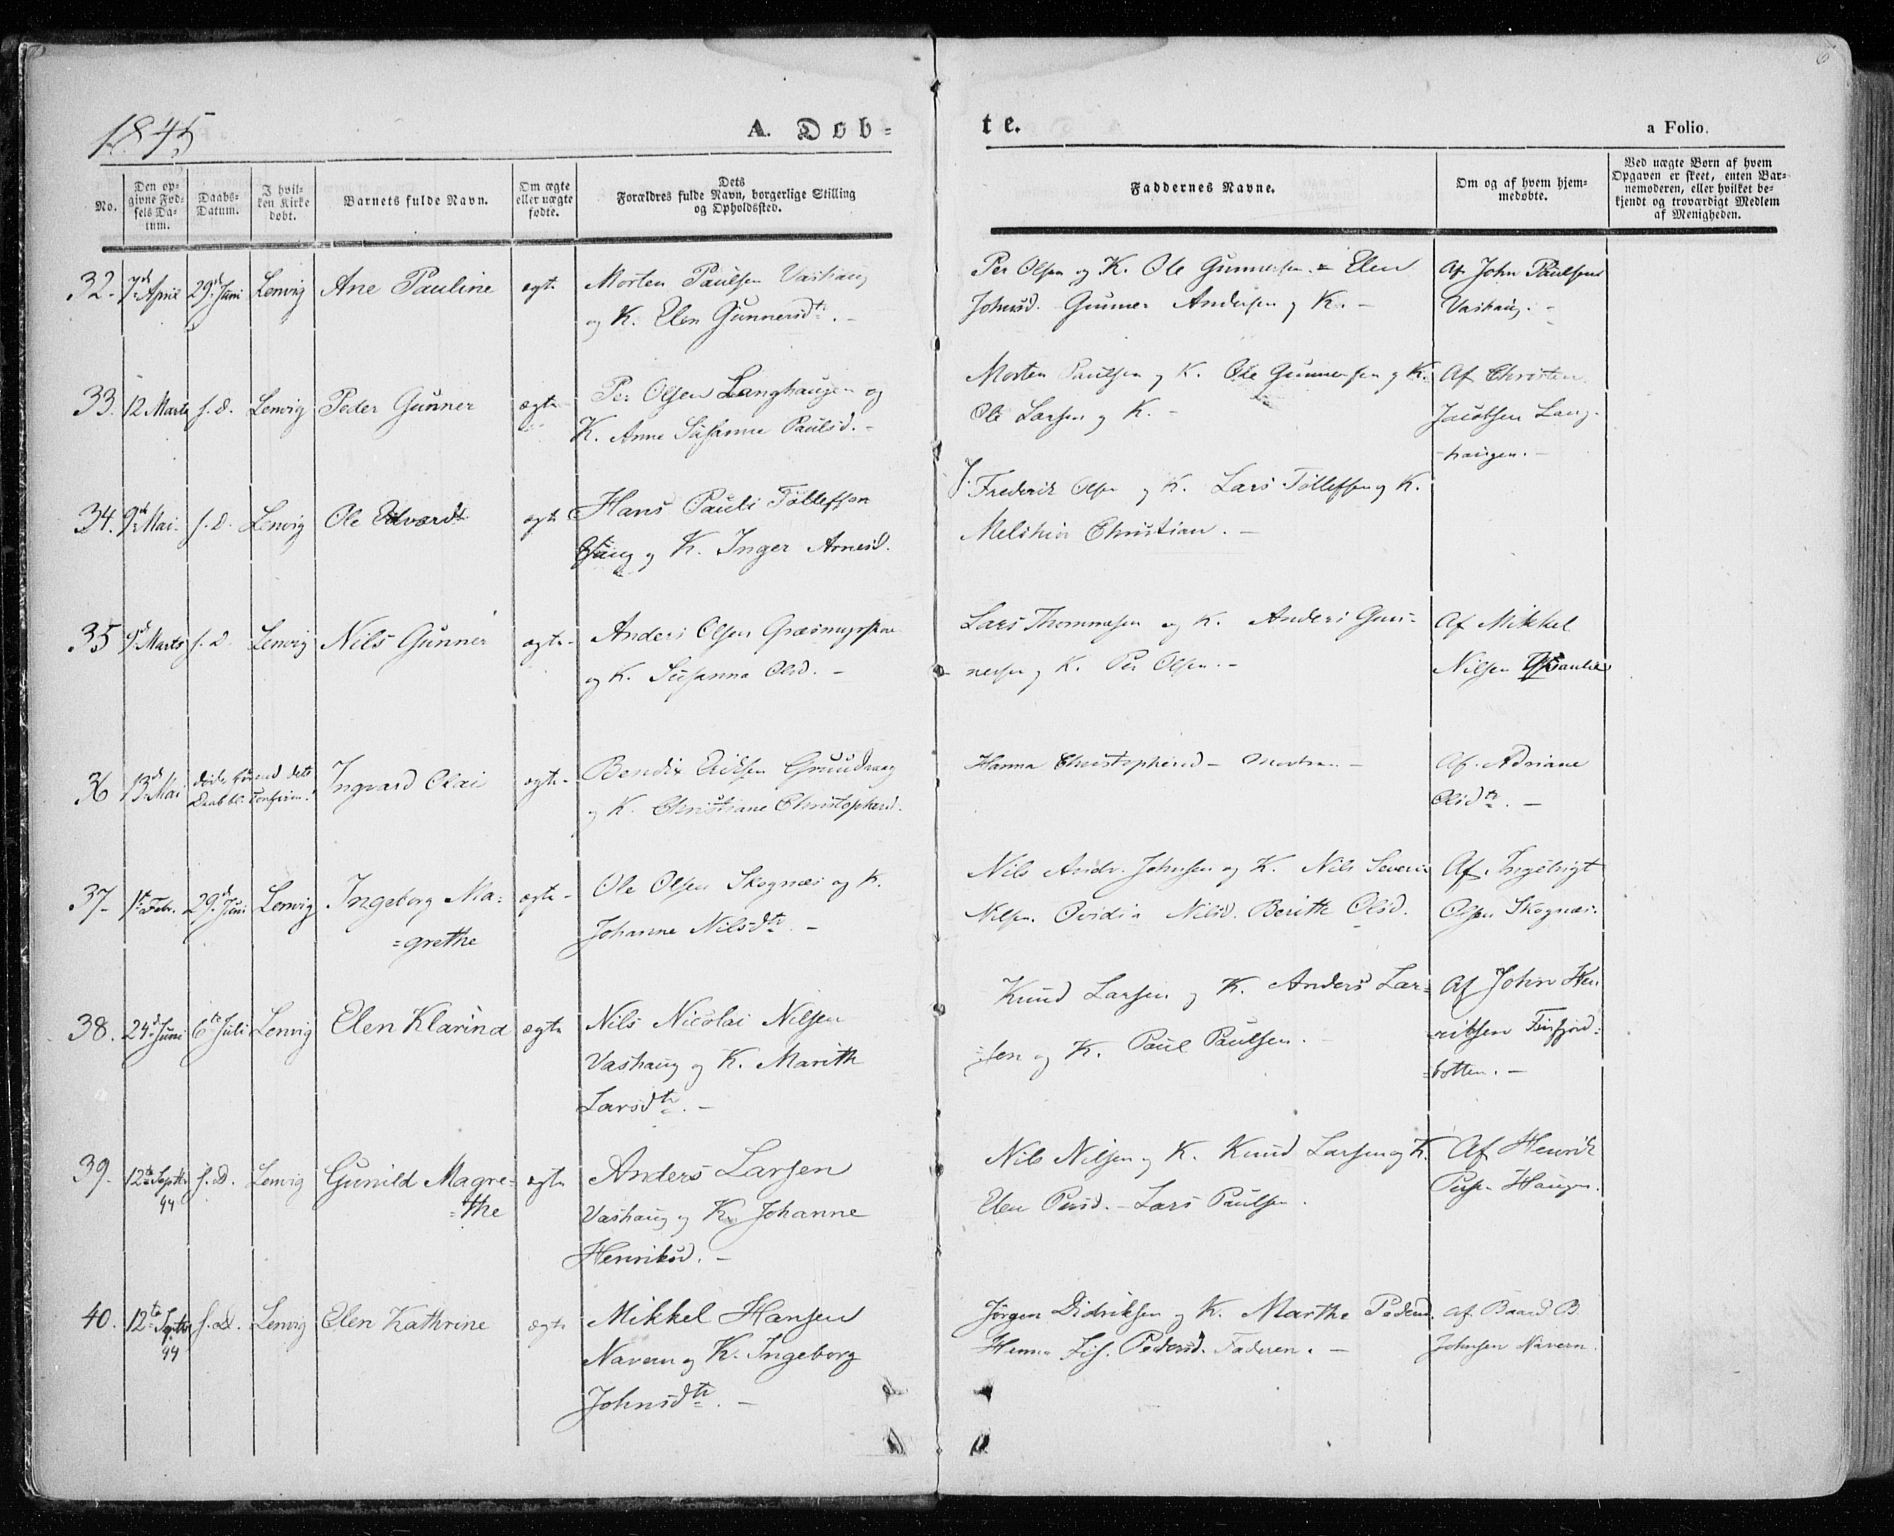 1845
A. Døb-
te.
a Folio.
No.
Den op-
givne Fød-
sels Da-
tum.
Daabs-
Datum.
I hvil-
ken Kirke
døbt.
Barnets fulde Navn.
Om ægte
eller uægte
fødte.
Dets
Forældres fulde Navn, borgerlige Stilling
og Opholdssted.
Faddernes Navne.
Om og af hvem hjem-
medøbte.
Ved uægte Børn af hvem
Opgaven er skeet, enten Bar-
nemoderen, eller hvilket be-
kjendt og troværdigt Medlem
af Menigheden.
32. 7d April 29d Juni Lenvig Ane Pauline ægte Morten Paulsen Vashaug
og K. Elen Gunnersdtr. -
Per Olsen og K. Ole Gunnersen. Elen
Johnsd. Gunner Andersen og K. -
Af John Paulsen
Vashaug. -
33. 12 Marts s. D. Lenvig Peder Gunner ægte Per Olsen Langhaugen og
K. Anne Susanne Paulsd. -
Morten Paulsen og K. Ole Gunnersen og K.
Ole Larsen og K. -
Af Christen
Jacobsen Lang-
-haugen. -
34. 9d Mai. s. D. Lenvig Ole Edvardt ægte Hans Pauli Tølleffsen
og K. Inger Arnesd.
Frederik Olsen og K. Lars Tølleffsen og K.
Melchior Christian. -
35 9d Marts s. D. Lenvig Nils Gunner ægte- Anders Olsen
og K. Susanna Olsd. -
Lars Thommesen og K. Anders Gun-
nersen og K. Per Olsen. -
Af Mikkel
Nilsen
36 13d Mai døde førend dets
Daab bl. Confirm. Ingvard Olai ægte- Bendix
og K. Christiane Christophersd.
Hanna Christophersd - -
Af. Adriane
Olsdtr. -
37. 1te Febr. 29d Juni Lenvig Ingeborg Ma=
=grethe ægte- Ole Olsen Skognæs og K.
Johanne Nilsdtr. -
Nils Andr. Johnsen og K. Nils Severin
Nilsen. Ovidia Nilsd. Berith Olsd.
Af. Ingebrigt
Olsen Skognæs.
38. 24d Juni 6te Juli Lenvig Elen Klarina ægte Nils Nicolai Nilsen
Vashaug og K. Marith
Larsdtr. -
Knud Larsen og K. Anders Lar=
sen og K. Paul Paulsen. -
Af John Hen
riksen Finfjord=
=botten. -
39. 12te Septbr
44 s. D. Lenvig Gunild Magre=
=the ægte Anders Larsen
Vashaug og K. Johanne
Henriksd. -
Nils Nilsen og K. Knud Larsen og K.
Elen Persd. - Lars Paulsen.
Af Henrik
Haugen.
40. 12te Septbr
44 s. D. Lenvig Elen Kathrine ægte Mikkel Hansen
Navern og K. Ingeborg
Johnsdtr. -
Jørgen Didriksen og K. Marthe Pedersd.
Pedersd. Faderen. -
af. Baard B.
Johnsen Navern.